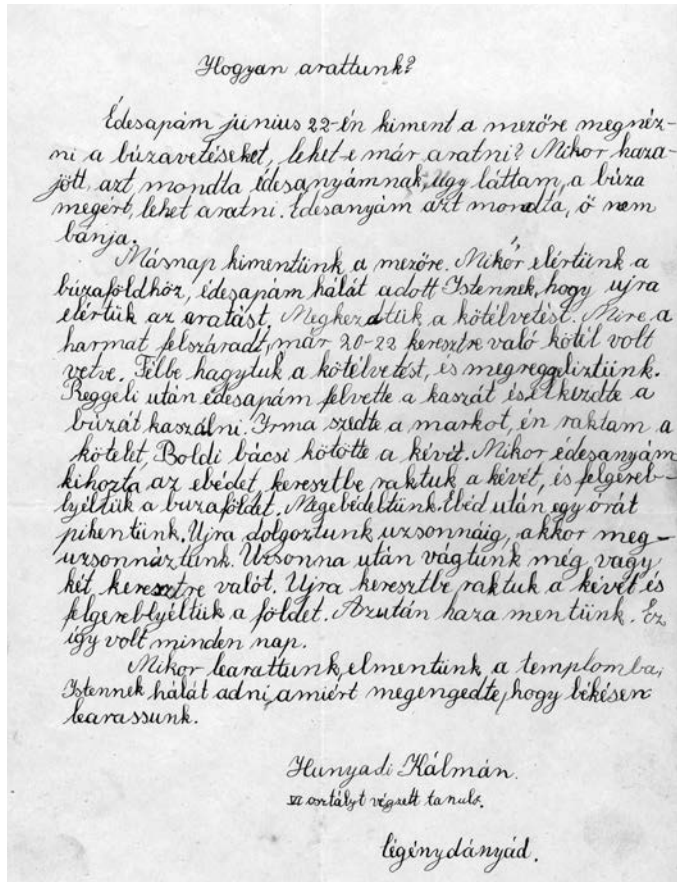 Hogyan arattunk?
Édesapám junius 22-én kiment a mezőre megnéz-
ni a búzavetéseket, lehet-e már aratni? Mikor haza-
jött, azt mondta édesanyámnak, úgy láttam, a búza
megért, lehet aratni. Édesanyám azt mondta, ő nem
bánja.
Másnap kimentünk a mezőre. Mikor elértünk a
búzaföldhöz, édesapám hálát adott Istennek, hogy ujra
elértük az aratást. Megkezdtük a kötélvetést. Mire a
harmat felszáradt, már 20-22 keresztre való kötél volt
vetve. Félbe hagytuk a kötélvetést, és megreggeliztünk.
Reggeli után édesapám felvette a kaszát és elkezdte a
búzát kaszálni. Irma szedte a markot, én raktam a
kötelet, Boldi bácsi kötötte a kévét. Mikor édesanyám
kihozta az ebédet, keresztbe raktuk a kévét, és felgereb-
lyéltük a buzaföldet. Megebédeltünk. Ebéd után egy órát
pihentünk. Ujra dolgoztunk uzsonnáig, akkor meg-
uzsonnáztunk. Uzsonna után vágtunk még vagy
két keresztre valót. Ujra keresztbe raktuk a kévét és
felgereblyéltük a földet. Azután haza mentünk. Ez
így volt minden nap.
Mikor learattunk, elmentünk a templomba,
Istennek hálát adni, amiért megengedte, hogy békésen
learassunk.
Hunyadi Kálmán.
VI osztályt végzett tanuló.
Légénydányád.